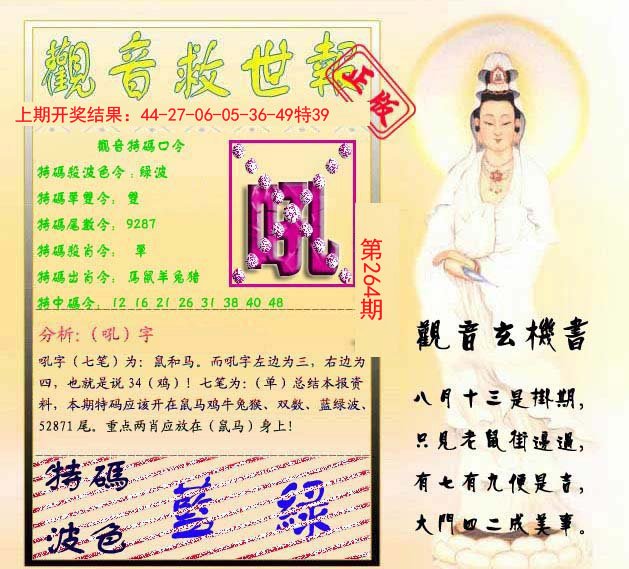 觀音救世報
正版
上期开奖结果：44-27-06-05-36-49特39
觀音特碼口令
特碼殺波色令：綠波
特碼單雙令： 雙
特碼尾數令： 9287
特碼殺肖令： 單
特碼出肖令： 馬鼠羊兔猪
特中碼令： 12 16 21 26 31 38 40 48
吼
第264期
分析：（吼）字
吼字（七笔）为：鼠和马。而吼字左边为三，右边为
四，也就是说 34（鸡）！七笔为：（单）总结本报资
料，本期特码应该开在鼠马鸡牛兔猴、双数、蓝绿波、
52871 尾。重点两肖应放在（鼠马）身上！
特碼
波色
藍 綠
觀音玄機書
八月十三是掛期，
只見老鼠街邊過，
有七有九便是吉，
大門四二成美事。